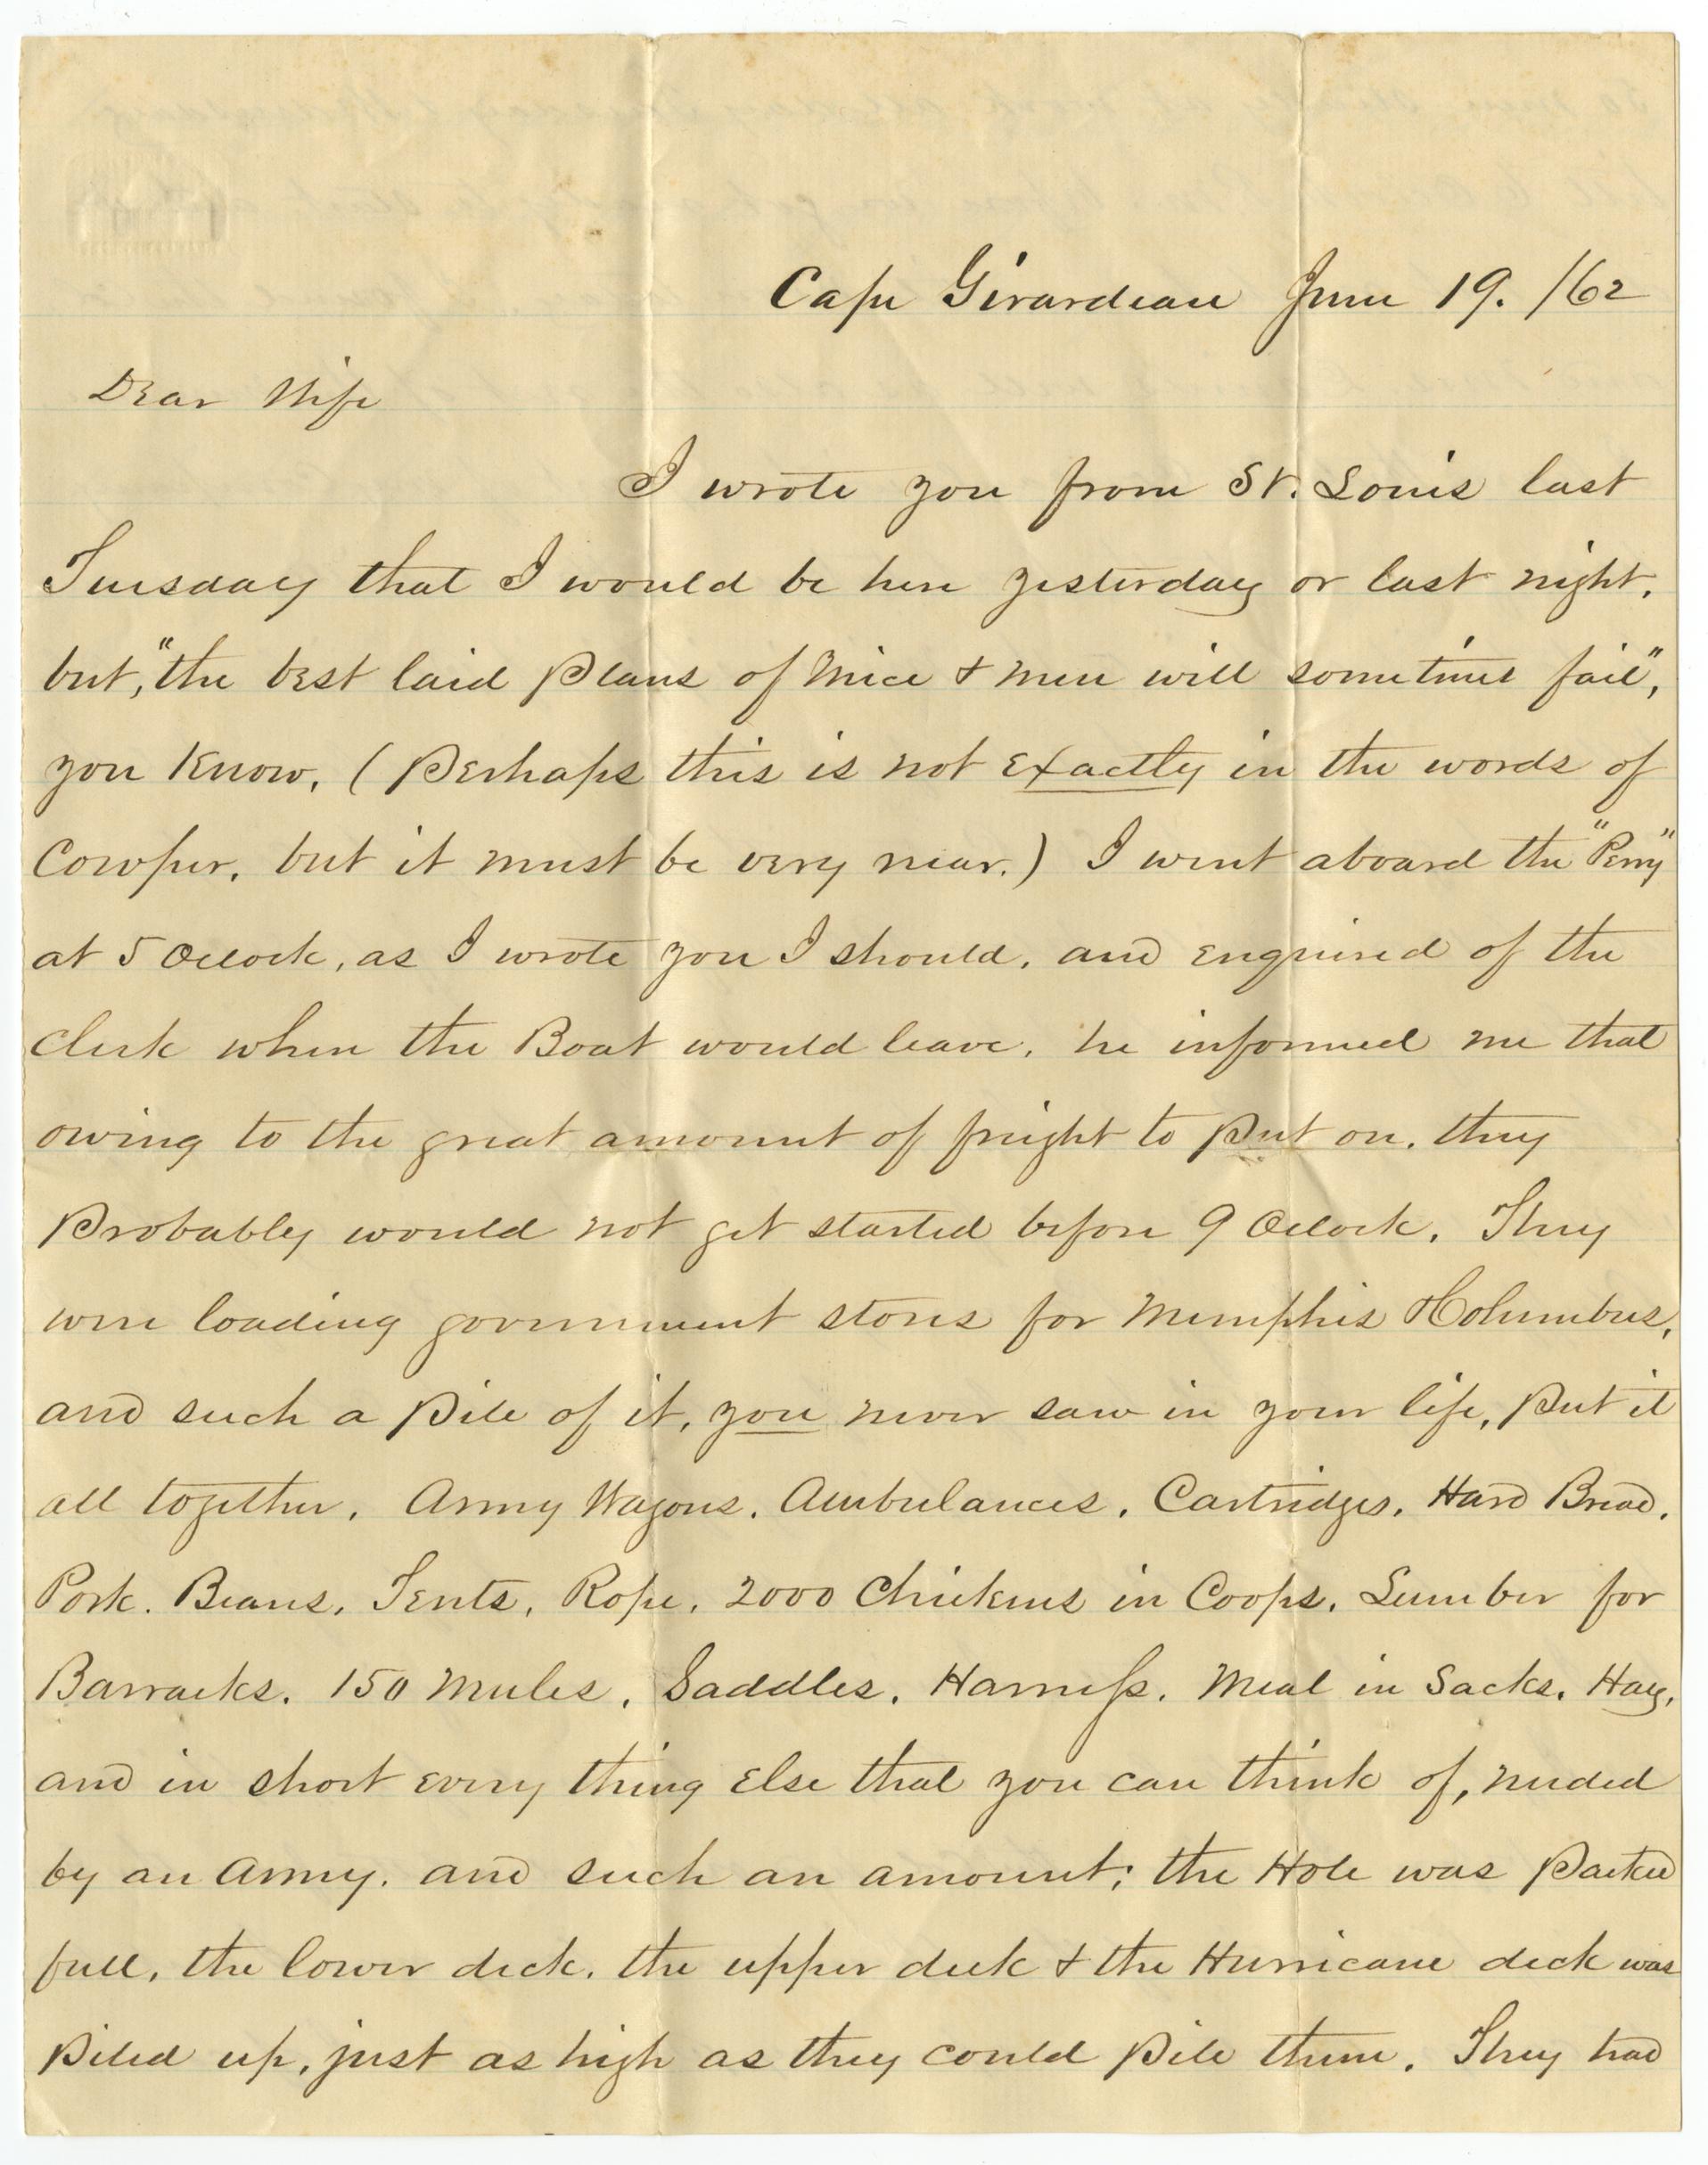 Cape Girardeau June 19. /62
Dear Wife
I wrote you from St. Louis last
Tuesday that I would be here yesterday or last night,
but, "the best laid Plans of Mice & Men will sometimes fail",
you Know, (Perhaps this is not Exactly in the words of
Cowper, but it must be very near.) I went aboard the "Perry"
at 5 Oclock, as I wrote you I should, and Enquired of the
Clerk when the Boat would leave, he informed me that
owing to the great amount of freight to Put on, they
Probably would not get started before 9 Oclock. They
were loading government stores for Memphis & Columbus,
and such a Pile of it, you never saw in your life, Put it
all together. Army Wagons, Ambulances, Cartridges, Hard Bread,
Pork, Beans, Tents, Rope, 2000 Chickens in Coops, Lumber for
Barracks, 150 Mules, Saddles, Harness, Meal in Sacks, Hay,
and in short every thing Else that you can think of, needed
by an Army, and such an amount; the Hole was Packed
full, the lower deck, the upper deck & the Hurricane deck was
Piled up, just as high as they could Pile them. They had